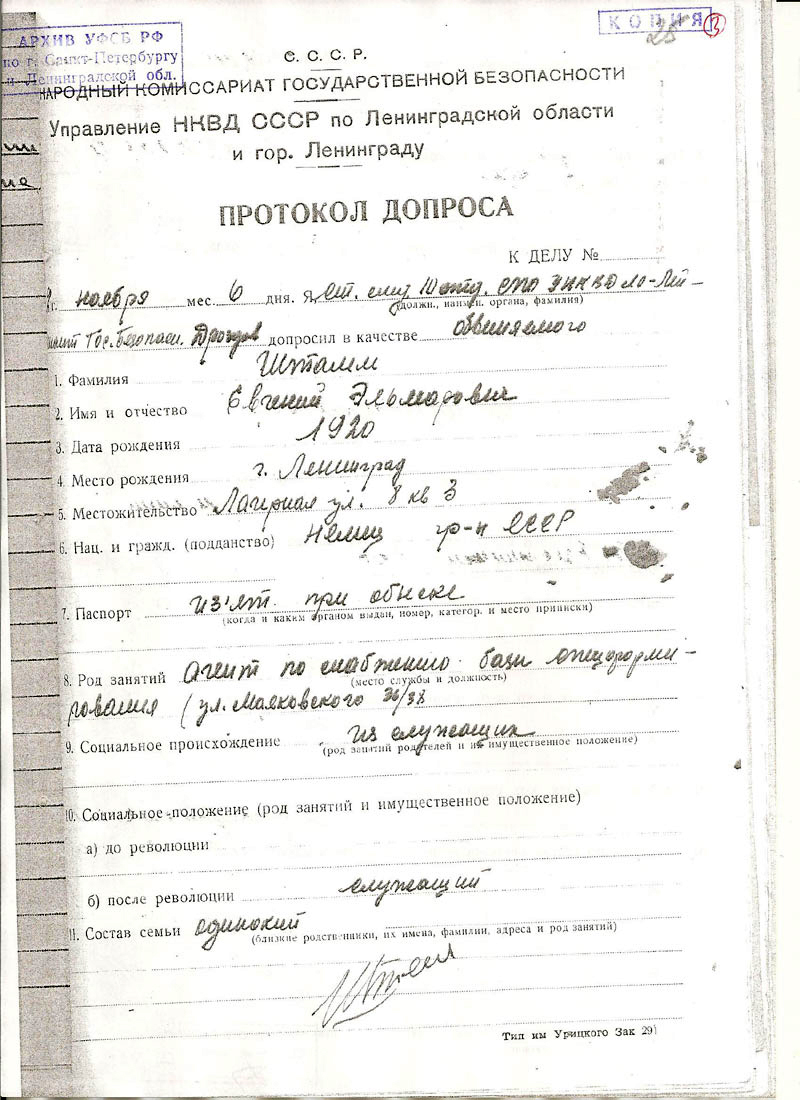 АРХИВ УФСБ РФ
по г. Санкт-Петербургу
и Ленинградской обл.
КОПИЯ
25
3
С. С. С. Р.
НАРОДНЫЙ КОМИССАРИАТ ГОСУДАРСТВЕННОЙ БЕЗОПАСНОСТИ
Управление НКВД СССР по Ленинградской области
и гор. Ленинграду
ПРОТОКОЛ ДОПРОСА
К ДЕЛУ №
г. ноября мес. 6 дня. Я, ст. след
(должн., наимен. органа, фамилия)
Гос. Безопасн. Дроздов допросил в качестве обвиняемого
1. Фамилия Штамм
2. Имя и отчество Евгений Эльмарович
3. Дата рождения 1920
4. Место рождения г. Ленинград
5. Местожительство Лагерная ул. 8 кв 3
6. Нац. и гражд. (подданство) Немец гр-н СССР
7. Паспорт из'ят при обыске
(когда и каким органом выдан, номер, категор. и место приписки)
8. Род занятий Агент по снабжению базы спецформи-
(место службы и должность)
рования (ул. Маяковского 36/38
9. Социальное происхождение из служащих
(род занятий родителей и их имущественное положение)
10. Социальное положение (род занятий и имущественное положение)
а) до революции
б) после революции служащий
11. Состав семьи одинокий
(близкие родственники, их имена, фамилии, адреса и род занятий)
Тип им Урицкого Зак 291